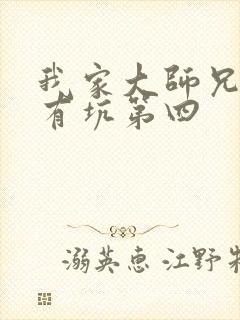 我家大師兄
有坑第四
溺英惠 江野